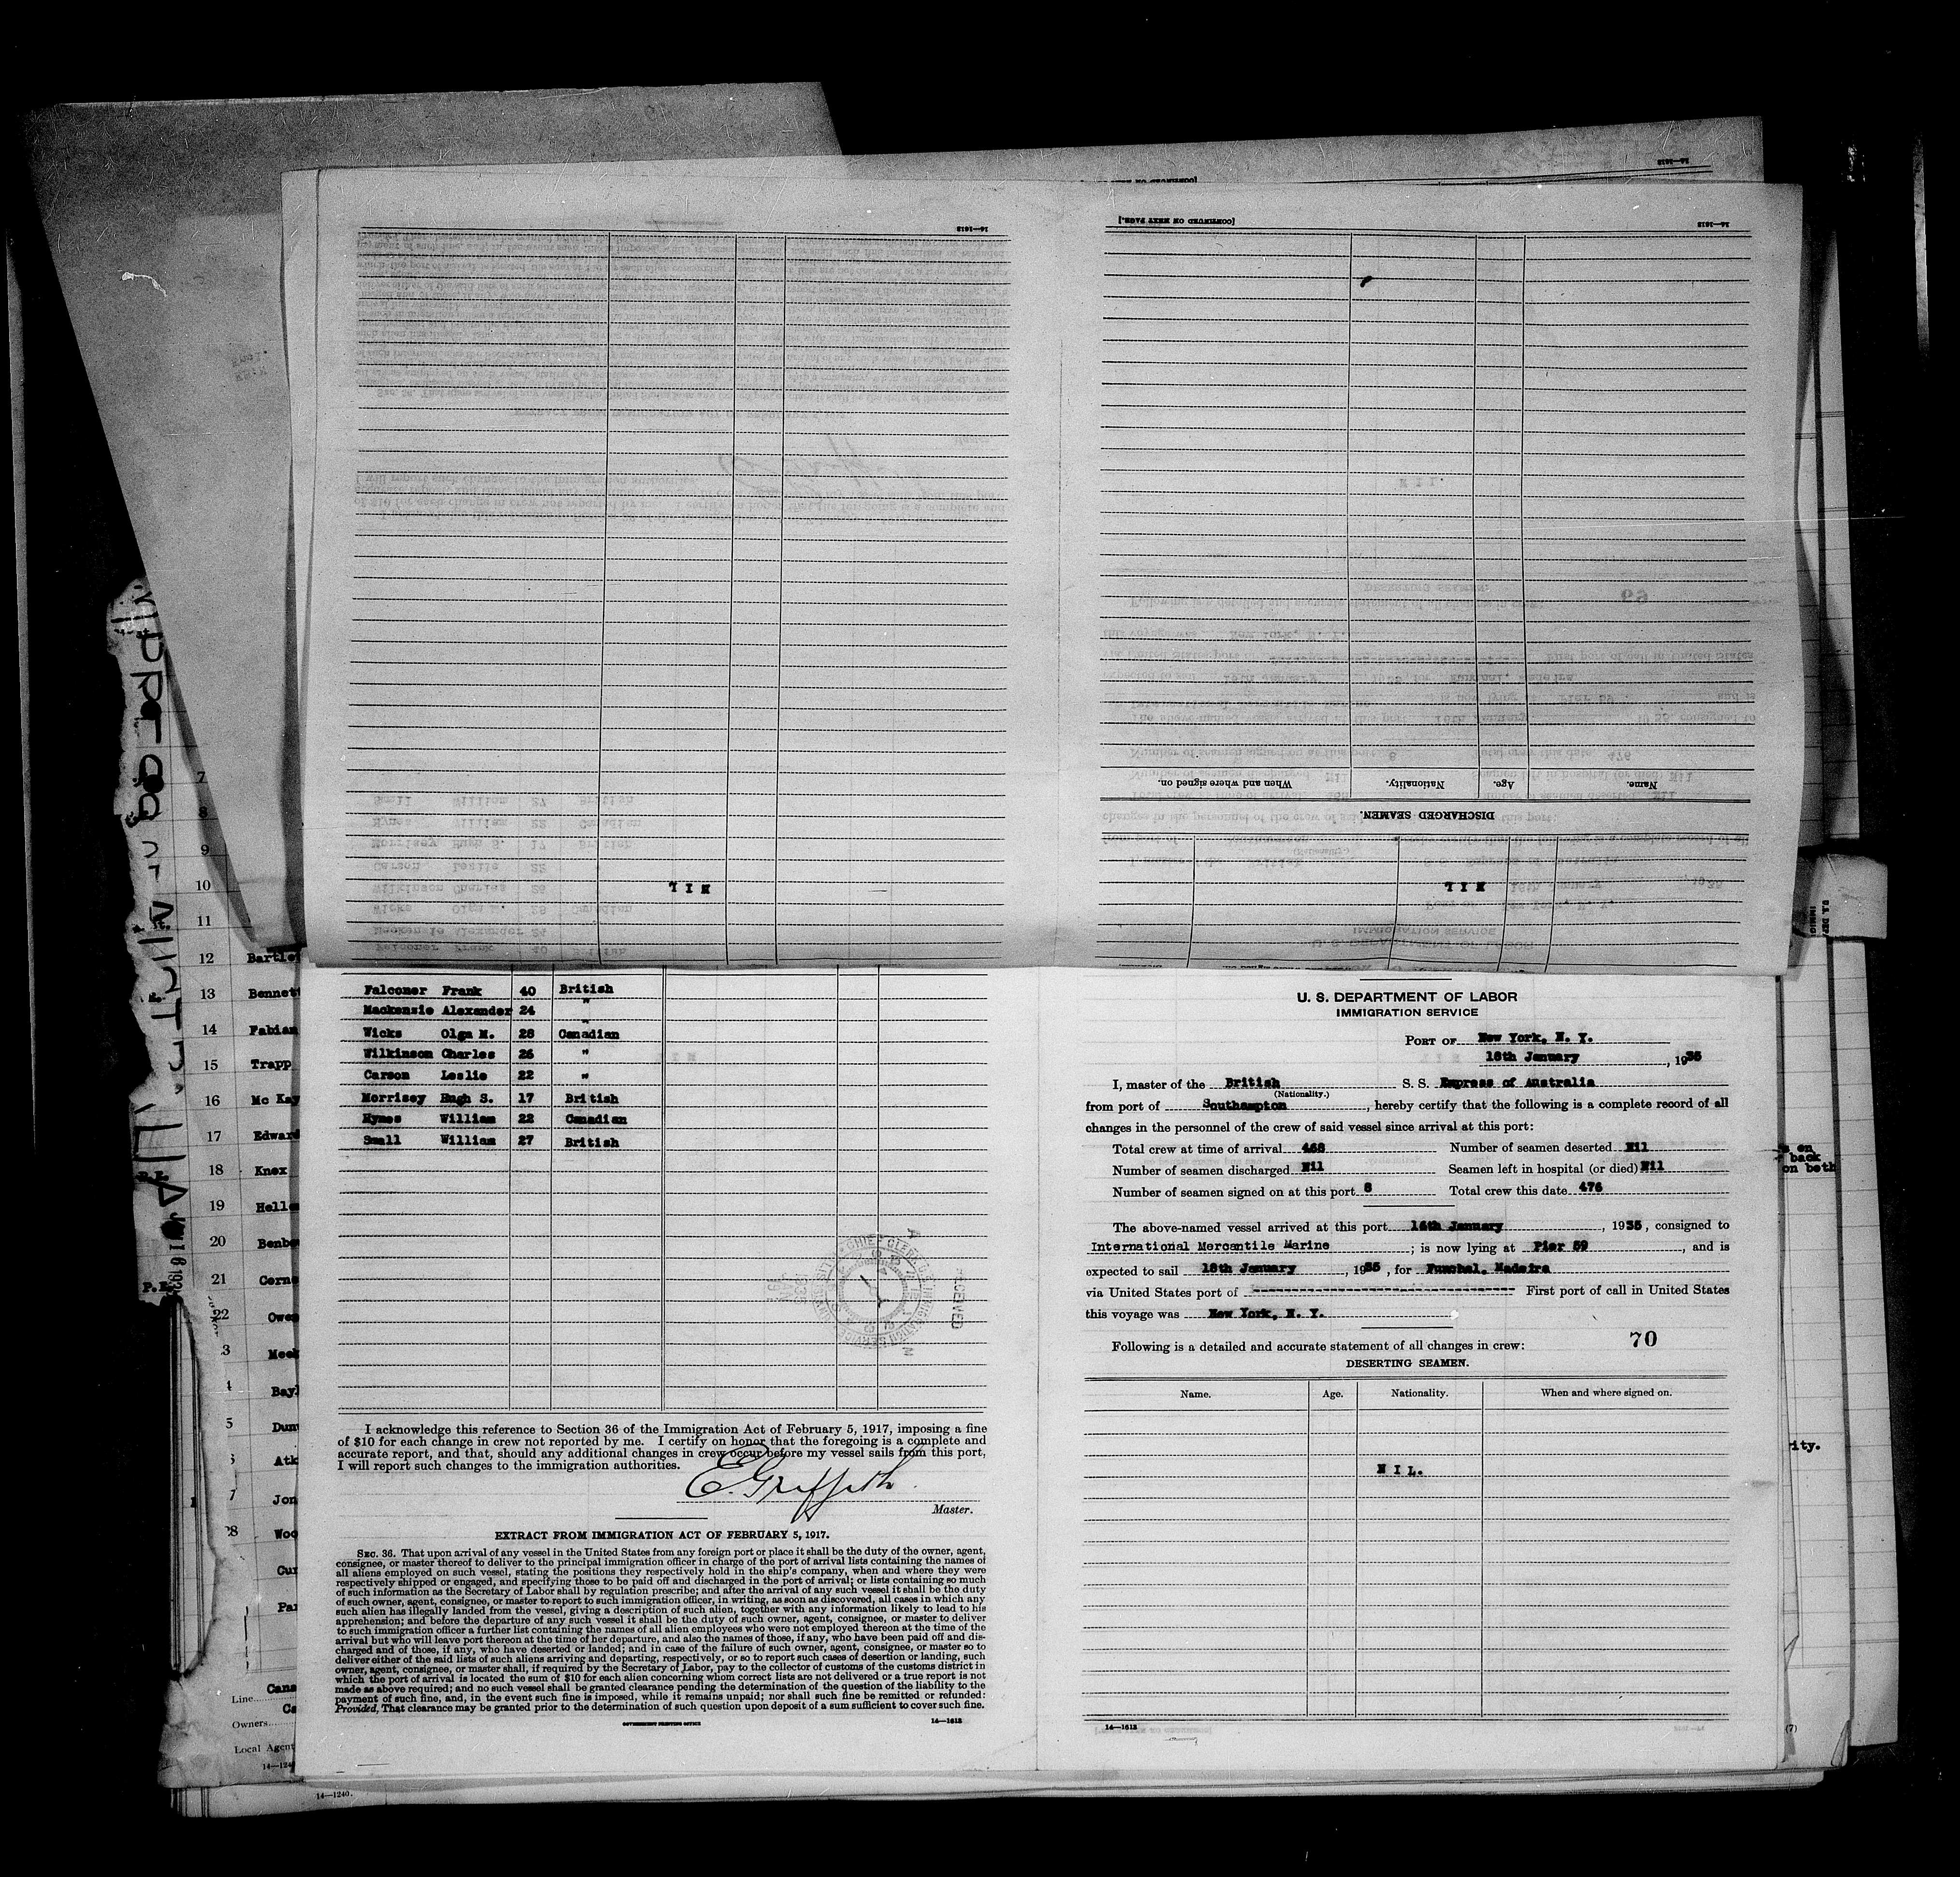 14—1613
[CONTINUED ON NEXT PAGE.]
14—1613
14—1613
DISCHARGED SEAMEN.
Name.
Age.
Nationality.
When and where signed on.
NIL
NIL
7
8
9
10
11
12 Bartle
13 Bennett
14 Fabian
15 Trapp
16 Mc Kay
17 Edward
18 Knox
19 Helle
20 Benbo
21 Corne
22 Owe
3 Meek
Bayl
5 Dunn
Atk
7 Jon
28 Woo
Cur
Par
Line
Owners
Local Agent
14—1240.
Falconer Frank 40 British
Mackenzie Alexander 24 "
Wicks Olga M. 28 Canadian
Wilkinson Charles 26 "
Carson Leslie 22 "
Morrisey Hugh S. 17 British
Hymes William 22 Canadian
Small William 27 British
I acknowledge this reference to Section 36 of the Immigration Act of February 5, 1917, imposing a fine
of $10 for each change in crew not reported by me. I certify on honor that the foregoing is a complete and
accurate report, and that, should any additional changes in crew occur before my vessel sails from this port,
I will report such changes to the immigration authorities.
E. Griffith
Master.
EXTRACT FROM IMMIGRATION ACT OF FEBRUARY 5, 1917.
SEC. 36. That upon arrival of any vessel in the United States from any foreign port or place it shall be the duty of the owner, agent,
consignee, or master thereof to deliver to the principal immigration officer in charge of the port of arrival lists containing the names of
all aliens employed on such vessel, stating the positions they respectively hold in the ship's company, when and where they were
respectively shipped or engaged, and specifying those to be paid off and discharged in the port of arrival; or lists containing so much
of such information as the Secretary of Labor shall by regulation prescribe; and after the arrival of any such vessel it shall be the duty
of such owner, agent, consignee, or master to report to such immigration officer, in writing, as soon as discovered, all cases in which any
such alien has illegally landed from the vessel, giving a description of such alien, together with any information likely to lead to his
apprehension; and before the departure of any such vessel it shall be the duty of such owner, agent, consignee, or master to deliver
to such immigration officer a further list containing the names of all alien employees who were not employed thereon at the time of the
arrival but who will leave port thereon at the time of her departure, and also the names of those, if any, who have been paid off and dis-
charged and of those, if any, who have deserted or landed; and in case of the failure of such owner, agent, consignee, or master so to
deliver either of the said lists of such aliens arriving and departing, respectively, or so to report such cases of desertion or landing, such
owner, agent, consignee, or master shall, if required by the Secretary of Labor, pay to the collector of customs of the customs district in
which the port of arrival is located the sum of $10 for each alien concerning whom correct lists are not delivered or a true report is not
made as above required; and no such vessel shall be granted clearance pending the determination of the question of the liability to the
payment of such fine, and, in the event such fine is imposed, while it remains unpaid; nor shall such fine be remitted or refunded:
Provided, That clearance may be granted prior to the determination of such question upon deposit of a sum sufficient to cover such fine.
GOVERNMENT PRINTING OFFICE 14—1613
U. S. DEPARTMENT OF LABOR
IMMIGRATION SERVICE
PORT OF New York, N. Y.
18th January, 1935
I, master of the British S. S. Empress of Australia
(Nationality.)
from port of Southampton, hereby certify that the following is a complete record of all
changes in the personnel of the crew of said vessel since arrival at this port:
Total crew at time of arrival 468 Number of seamen deserted Nil
Number of seamen discharged Nil Seamen left in hospital (or died) Nil
Number of seamen signed on at this port 8 Total crew this date 476
The above-named vessel arrived at this port 16th January, 1935, consigned to
International Mercantile Marine; is now lying at Pier 59, and is
expected to sail 18th January, 1935, for Funchal, Madeira
via United States port of ---------- First port of call in United States
this voyage was New York, N. Y.
70
Following is a detailed and accurate statement of all changes in crew:
DESERTING SEAMEN.
Name. Age. Nationality. When and where signed on.
NIL.
14—1613
on both
(7)